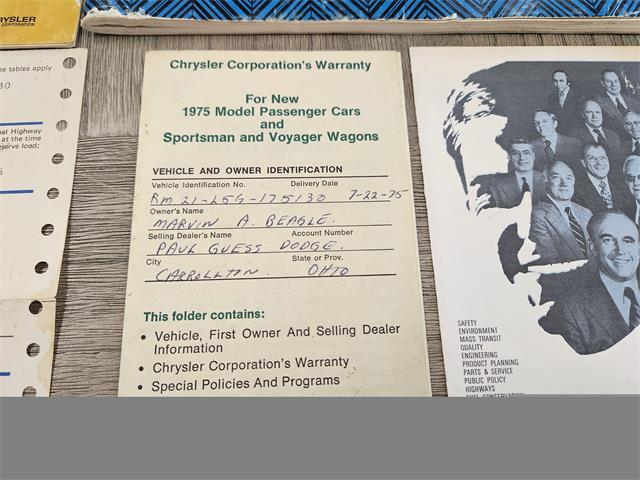 RYSLER
CORPORATION
se tables apply
30
nal Highway
at the time
eserve load;
Chrysler Corporation's Warranty
For New
1975 Model Passenger Cars
and
Sportsman and Voyager Wagons
VEHICLE AND OWNER IDENTIFICATION
Vehicle Identification No. Delivery Date
RM 21-L5G-175130 7-22-75
Owner's Name
MARVIN A. BEAGLE.
Selling Dealer's Name Account Number
PAUL GUESS DODGE.
City State or Prov.
CARROLLTON. OHIO
This folder contains:
• Vehicle, First Owner And Selling Dealer
Information
• Chrysler Corporation's Warranty
• Special Policies And Programs
SAFETY
ENVIRONMENT
MASS TRANSIT
QUALITY
ENGINEERING
PRODUCT PLANNING
PARTS & SERVICE
PUBLIC POLICY
HIGHWAYS
FUEL CONSERVATION